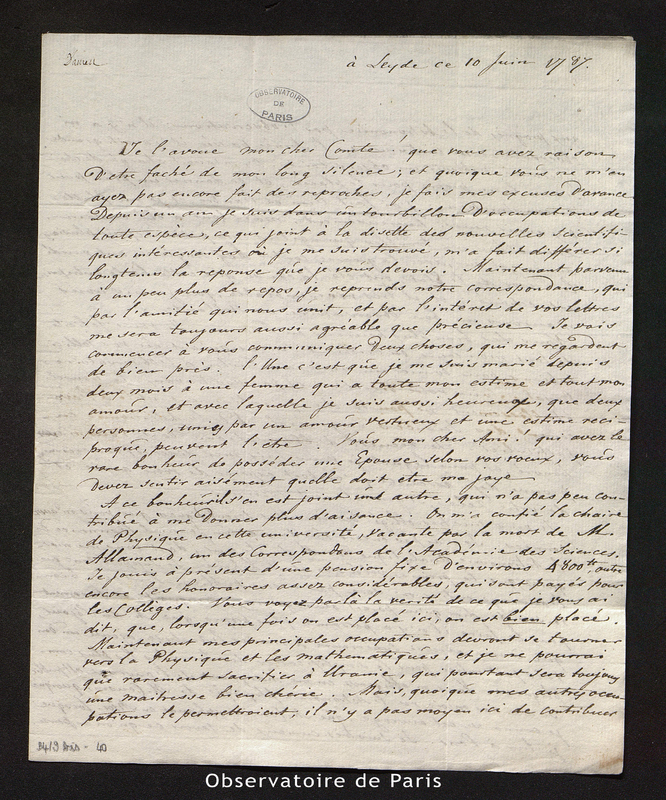 Damen
à Leyde ce 10 Juin 1787.
OBSERVATOIRE
DE
PARIS
Je l'avoue mon cher Comte! que vous avez raison
D'etre faché de mon long silence; et quoique vous ne m'en
ayez pas encore fait des reproches, je fais mes excuses d'avance
Depuis un an je suis dans un tourbillon D'occupations de
toute espèce, ce qui joint à la disette des nouvelles scientifi-
ques intéressantes où je me suis trouvé, m'a fait différer si
longtems la reponse que je vous devois. Maintenant parvenu
à un peu plus de repos, je reprends notre correspondance, qui
par l'amitié qui nous unit, et par l'intérêt de vos lettres
me sera toujours aussi agréable que précieuse. Je vais
commencer à vous communiquer deux choses, qui me regardent
de bien près. l'Une c'est que je me suis marié depuis
deux mois à une femme qui a toute mon estime et tout mon
amour, et avec laquelle je suis aussi heureux, que deux
personnes, unis par un amour vertueux et une estime reci-
proque, peuvent l'etre. Vous mon cher Ami! qui avez le
rare bonheur de posséder une Epouse selon vos voeux, vous
devez sentir aisément quelle doit etre ma joye
A ce bonheur il s'en est joint un autre, qui n'a pas peu con-
tribué à me donner plus d'aisance. On m'a confié la chaire
de Physique en cette université, vacante par la mort de M.
Allamand, un des Correspondans de l'Académie des Sciences.
Je jouis à présent d'une pension fixe d'environs 4800 tt outre
encore les honoraires assez considérables, qui sont payés pour
les Collèges. Vous voyez par là la verité de ce que je vous ai
dit, que, lorsqu'une fois on est placé ici, on est bien placé.
Maintenant mes principales occupations devront se tourner
vers la Physique et les mathematiques, et je ne pourrai
que rarement sacrifier à Uranie, qui pourtant sera toujours
une maitresse bien chérie. Mais, quoique mes autres occu-
pations le permettroient, il n'y a pas moyen ici de contribuer
40
Observatoire de Paris